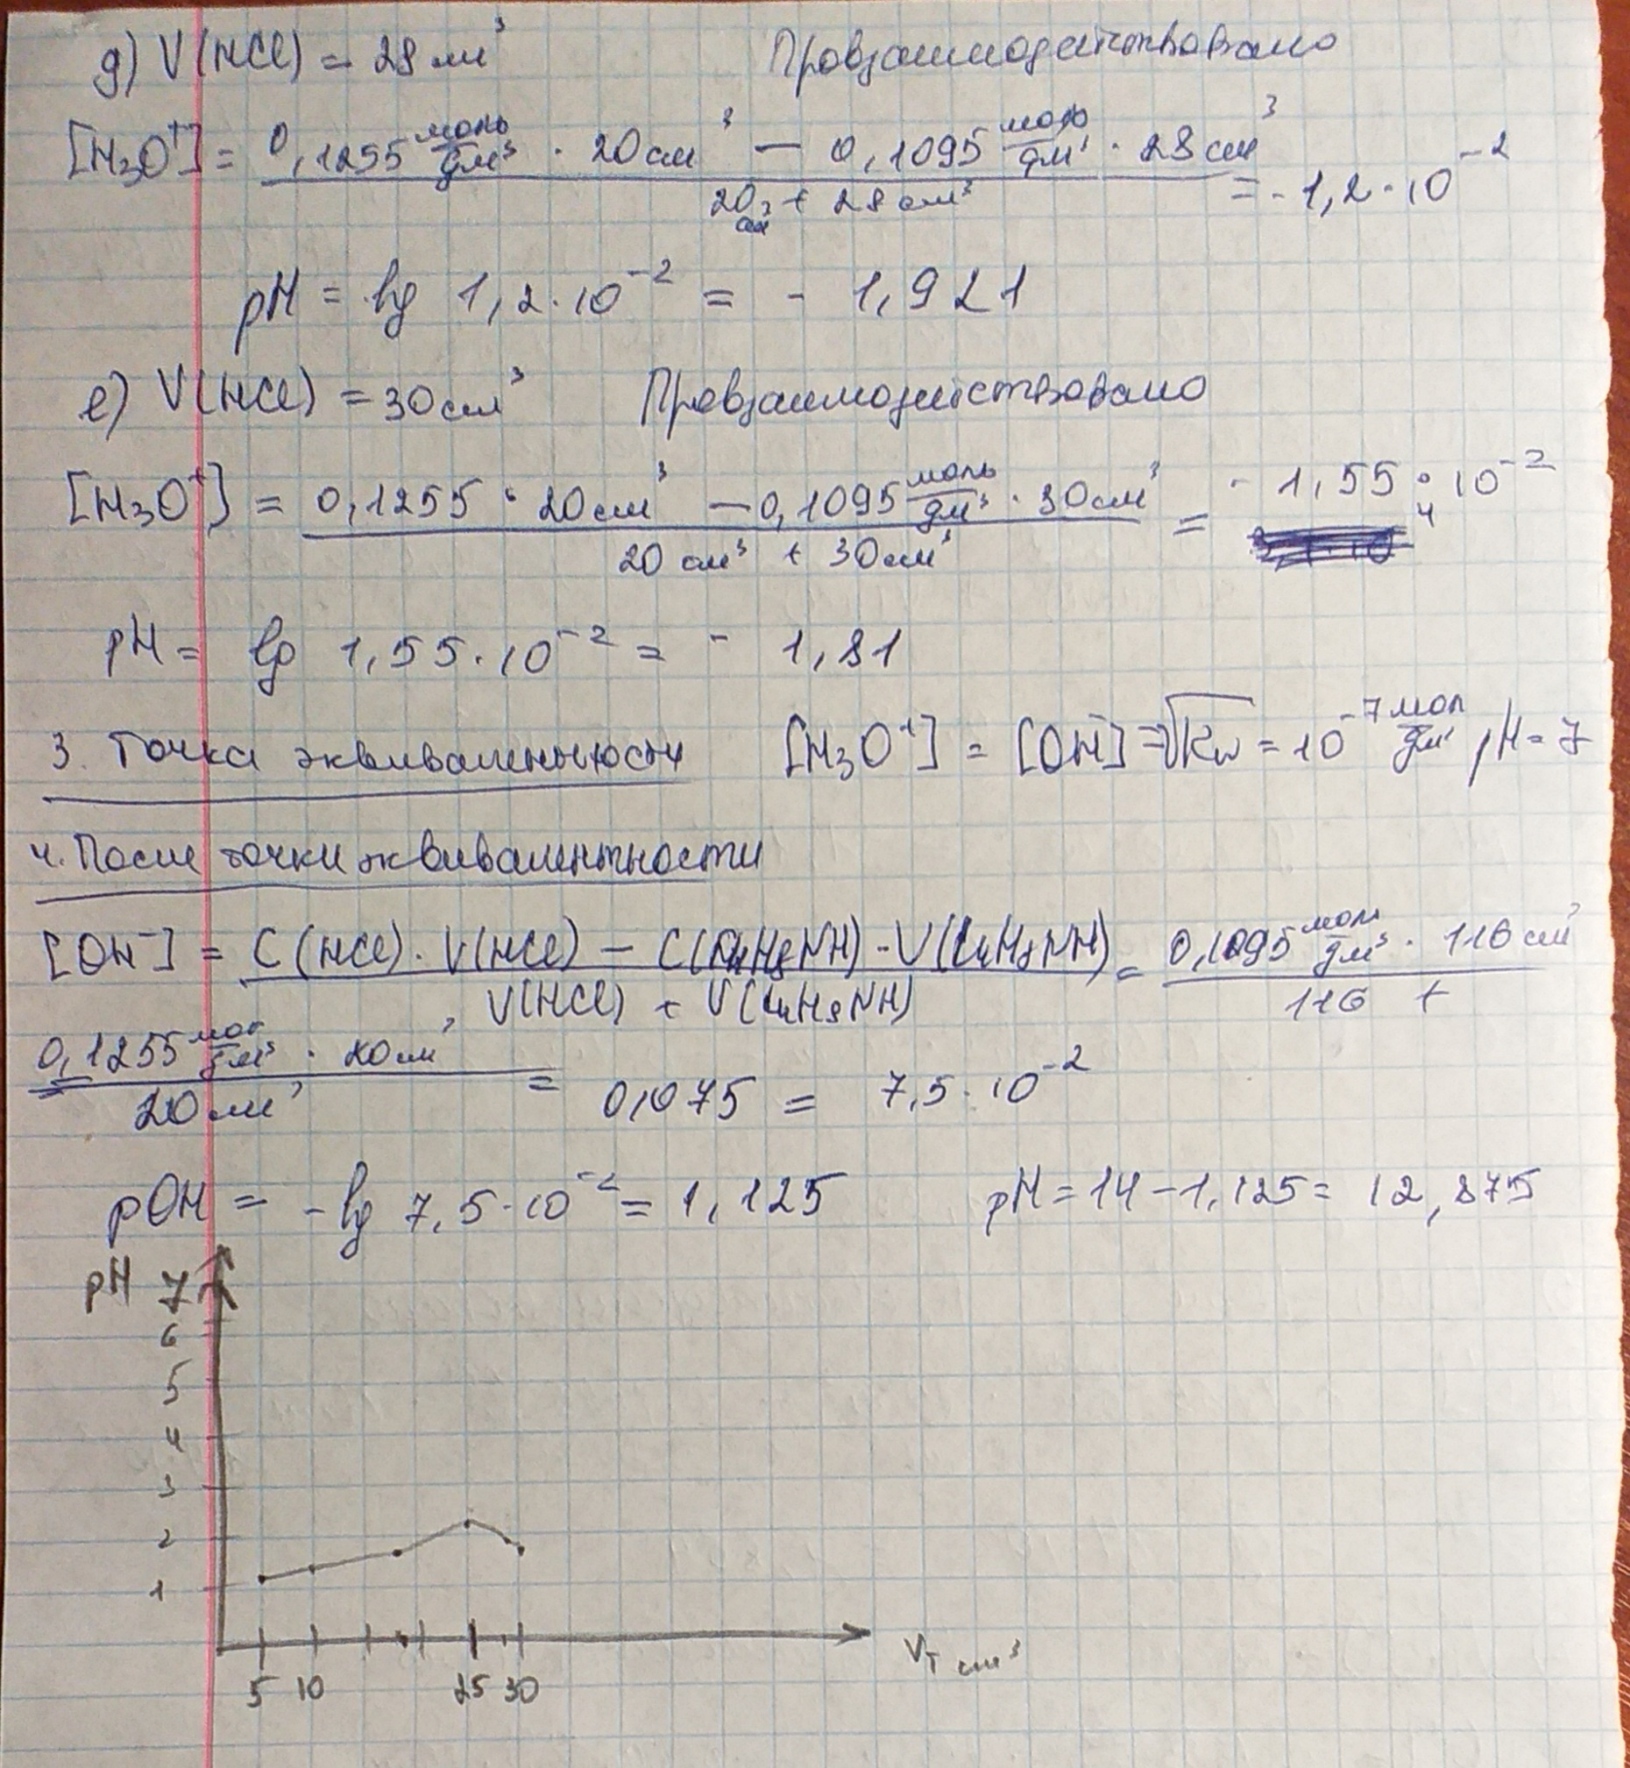 д) V(HCl) = 28 см³ Провзаимодействовало
[H₃O⁺] = (0,1255 моль/дм³ · 20 см³ – 0,1095 моль/дм³ · 28 см³) / (20 см³ + 28 см³) = - 1,2 · 10⁻²
pH = lg 1,2 · 10⁻² = - 1,921
е) V(HCl) = 30 см³ Провзаимодействовало
[H₃O⁺] = (0,1255 · 20 см³ – 0,1095 моль/дм³ · 30 см³) / (20 см³ + 30 см³) = - 1,55 · 10⁻²
pH = lg 1,55 · 10⁻² = - 1,81
3. Точка эквивалентности [H₃O⁺] = [OH⁻] = √Kw = 10⁻⁷ мол/дм³ pH = 7
4. После точки эквивалентности
[OH⁻] = (C(HCl) · V(HCl) – C(C₄H₈NH) · V(C₄H₈NH)) / (V(HCl) + V(C₄H₈NH)) = 0,1095 мол/дм³ · 116 см³ / 116 +
0,1255 мол/дм³ · 20 см³ / 20 см³ = 0,075 = 7,5 · 10⁻²
pOH = - lg 7,5 · 10⁻² = 1,125 pH = 14 – 1,125 = 12,875
pH 7
6
5
4
3
2
1
5 10 25 30 Vт см³